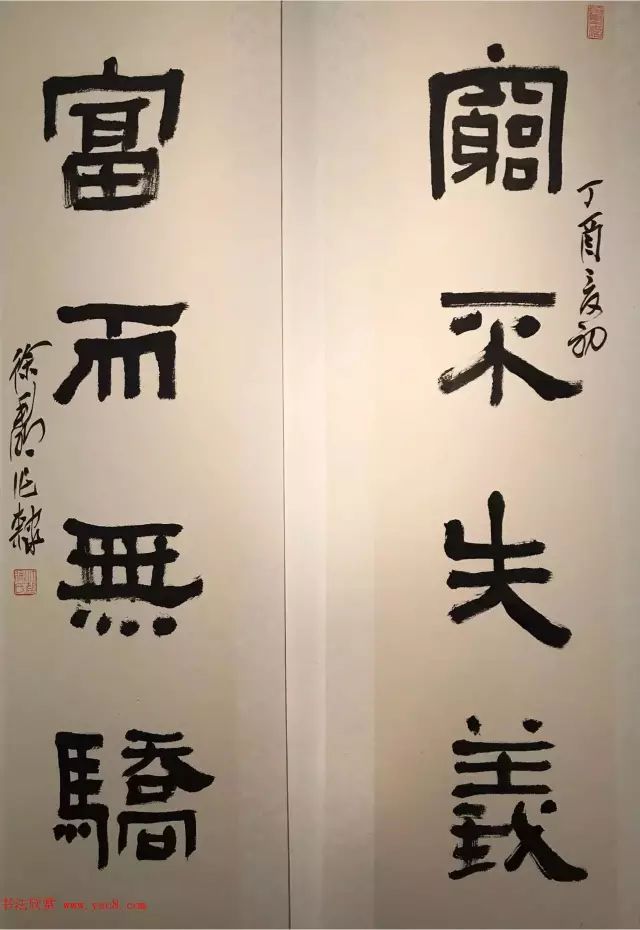 窮不失義
丁酉夏初
富而無驕
徐利明作隸
书法欣赏 www.yac8.com